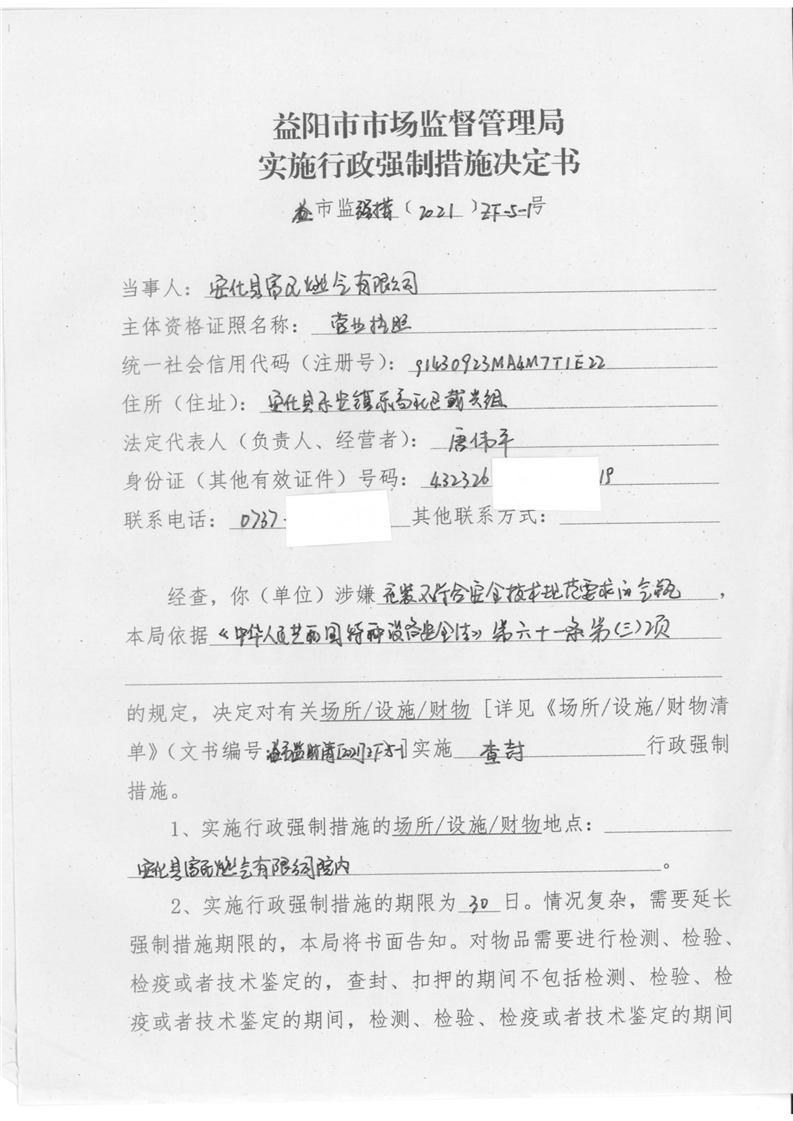 益阳市市场监督管理局
实施行政强制措施决定书
益市监强措(2021)ZF-5-1号
当事人:安化县富民燃气有限公司
主体资格证照名称:营业执照
统一社会信用代码(注册号):91430923MA4M7T1E22
住所(住址):安化县乐安镇乐高社区戴兴组
法定代表人(负责人、经营者):唐伟平
身份证(其他有效证件)号码:432326 19
联系电话:0737- 其他联系方式:
经查,你(单位)涉嫌充装不符合安全技术规范要求的气瓶,
本局依据《中华人民共和国特种设备安全法》第六十一条第(三)项
的规定,决定对有关场所/设施/财物[详见《场所/设施/财物清
单》(文书编号益市监财清[2021]ZF-5-1]实施 查封 行政强制
措施。
1、实施行政强制措施的场所/设施/财物地点:
安化县富民燃气有限公司院内。
2、实施行政强制措施的期限为30日。情况复杂,需要延长
强制措施期限的,本局将书面告知。对物品需要进行检测、检验、
检疫或者技术鉴定的,查封、扣押的期间不包括检测、检验、检
疫或者技术鉴定的期间,检测、检验、检疫或者技术鉴定的期间